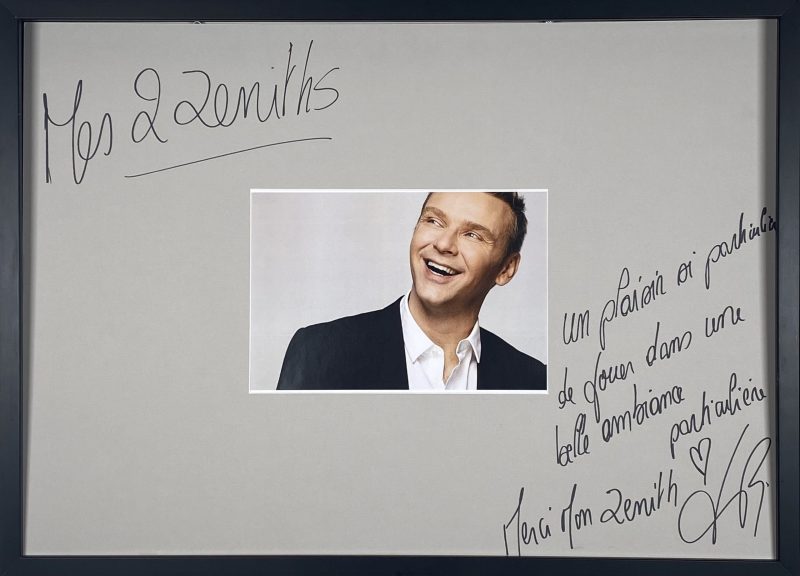 Mes 2 zeniths
un plaisir si particulier
de jouer dans une
belle ambiance
particulière
Merci Mon zenith ♡